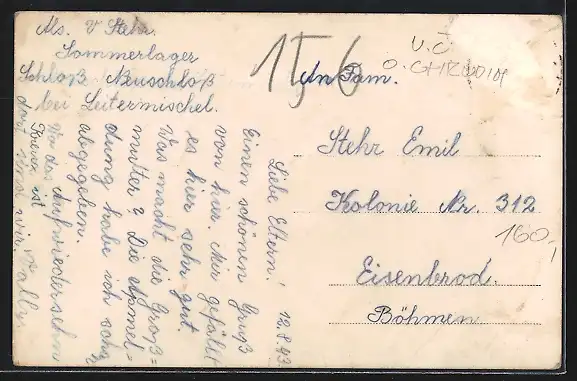 Abs. V Stehr.
Sommerlager
Schloß Neuschloß
bei Leitermischel.
156
An Fam.
Stehr Emil
Kolonie Nr. 312
160,-
Eisenbrod.
Böhmen
12.8.43
Liebe Eltern!
Einen schönen Gruß
von hier. Mir gefällt
es hier sehr gut.
Was macht die Groß=
mutter? Die Anmel=
dung habe ich schon
abgegeben.
Auf Wiedersehn
dort sind wir.